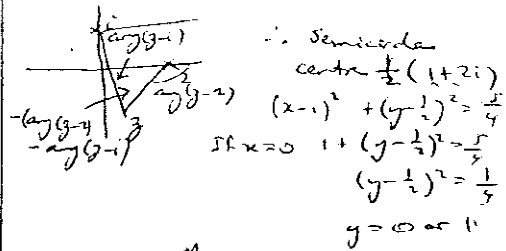 i
arg(z-i)
2
arg(z-2)
-(arg(z-2)
-arg(z-i)
z
∴ Semicircle
centre ½(1+2i)
(x-1)² + (y-½)² = 5/4
If x=0 1 + (y-½)² = 5/4
(y-½)² = ¼
y = 0 or 1